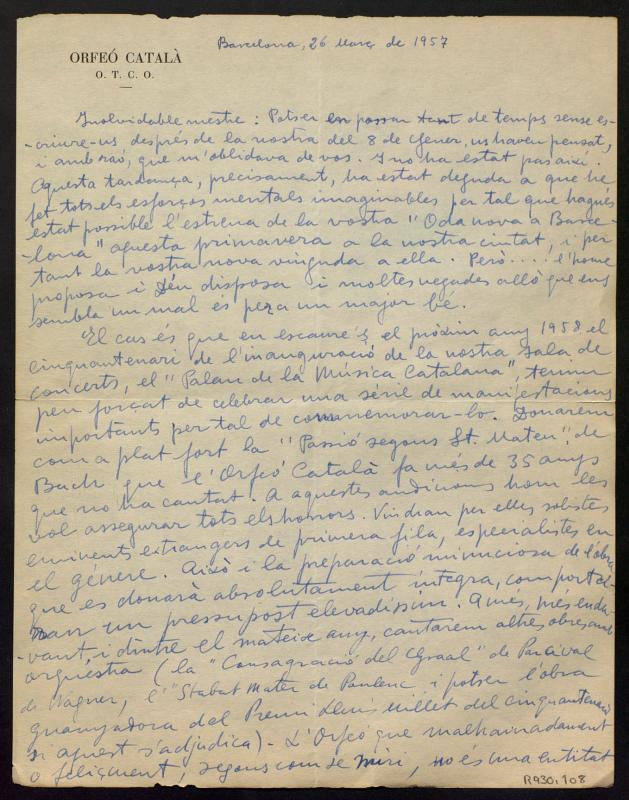 ORFEÓ CATALÀ
O. T. C. O.
Barcelona, 26 Març de 1957
Inolvidable mestre: Potser en passar tant de temps sense es-
-criure-us, després de la nostra del 8 de Gener, us haveu pensat,
i amb raó, que m'oblidava de vos. I no ha estat pas aixi.
Aquesta tardança, precisament, ha estat deguda a que he
fet tots els esforços mentals imaginables per tal que hagués
estat possible l'estrena de la vostra "Oda nova a Barce-
-lona" aquesta primavera a la nostra ciutat, i per
tant la vostra nova vinguda a ella. Però.... l'home
proposa i Déu disposa i moltes vegades allò que ens
sembla un mal és per a un major bé.
El cas és que en escaure's el pròxim any 1958 el
cinquantenari de l'inauguració de la nostra Sala de
concerts, el "Palau de la Música Catalana", tenim
per forçat de celebrar una sèrie de manifestacions
importants per tal de commemorar-lo. Donarem
com a plat fort la "Passió segons St. Mateu", de
Bach que l'Orfeó Català fa més de 35 anys
que no ha cantat. A aquestes audicions hom les
vol assegurar tots els honors. Vindran per elles solistes
eminents extrangers de primera fila, especialistes en
el génere. Això i la preparació minuciosa de l'obra
que es donarà absolutament íntegra, comportal-
ran un pressupost elevadíssim. A més, més enda-
-vant, i dintre el mateix any, cantarem altres obres amb
orquestra (la "Consagració del Graal" de Parcival
de Wagner, l'"Stabat Mater de Poulenc i potser l'obra
guanyadora del Premi Lluis Millet del cinquantenari
si aquest s'adjudica) - L'Orfeó que malhauradament
o feliçment, segons com se miri, no és una entitat
R930,108